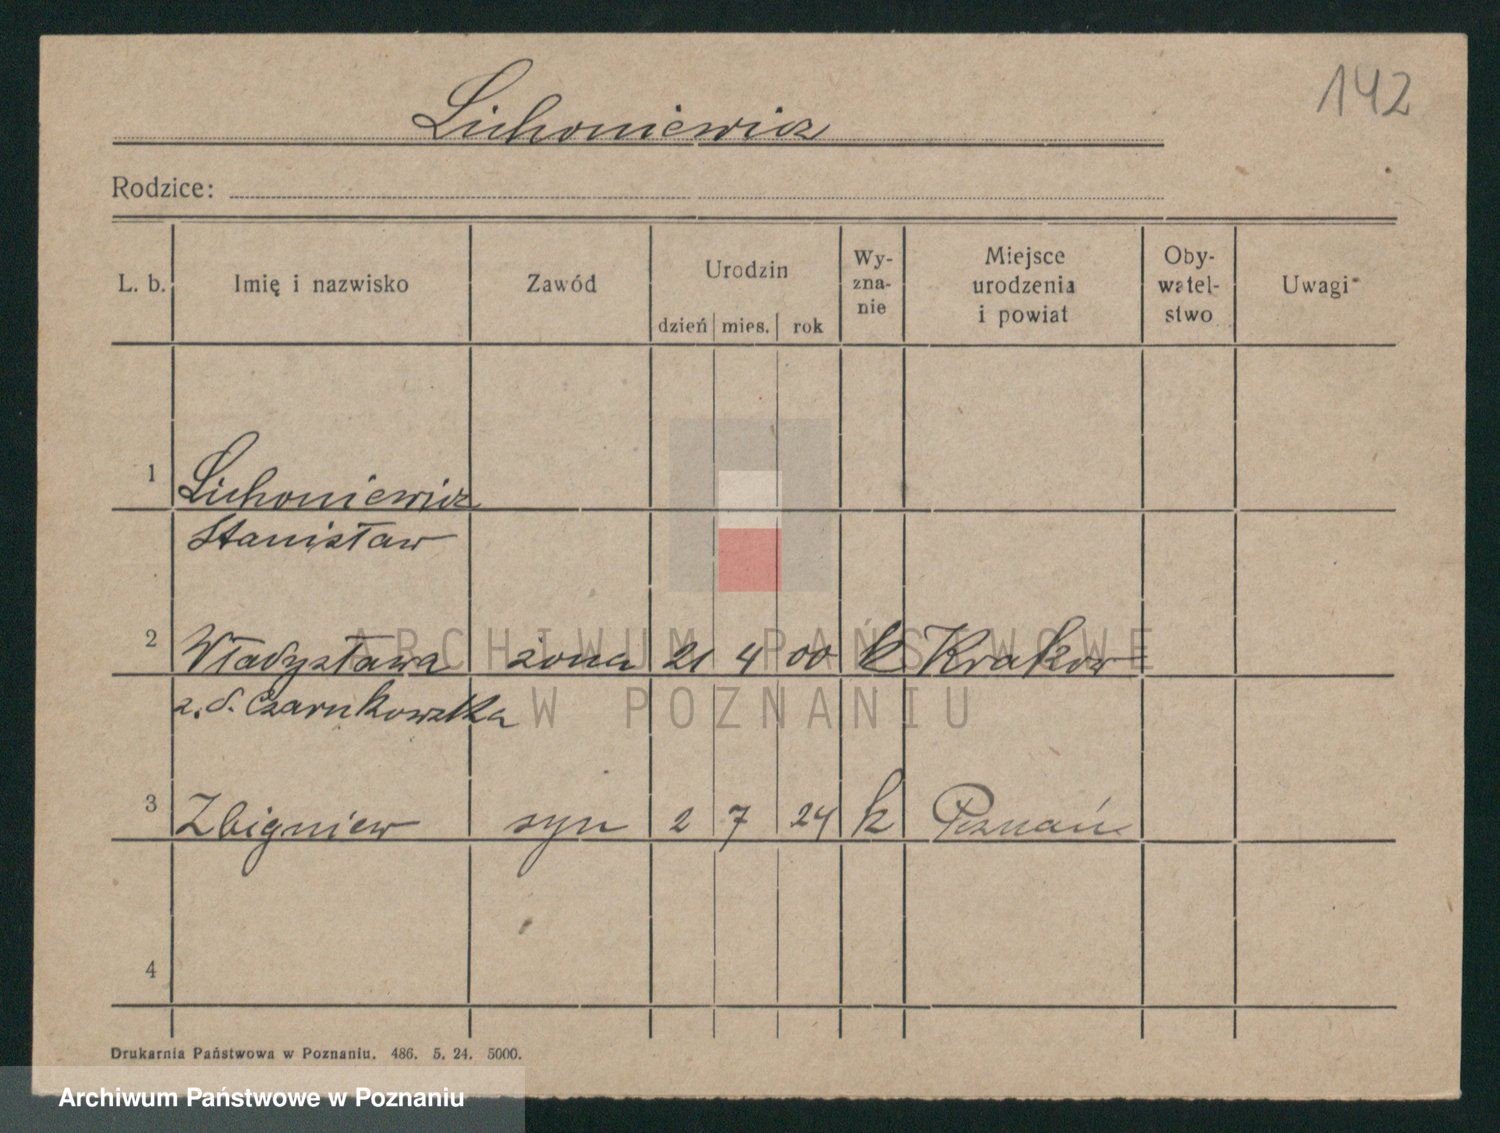 142
Lichoniewicz
Rodzice:
L. b. Imię i nazwisko Zawód Urodzin dzień mies. rok Wy-zna-nie Miejsce urodzenia i powiat Oby-watel-stwo Uwagi
1 Lichoniewicz
Stanisław
2 Władysława żona 21 4 00 k Kraków
z. d. Czarnkowska
3 Zbigniew syn 2 7 24 k Poznań
4
Drukarnia Państwowa w Poznaniu. 486. 5. 24. 5000.
ARCHIWUM PAŃSTWOWE
W POZNANIU
Archiwum Państwowe w Poznaniu